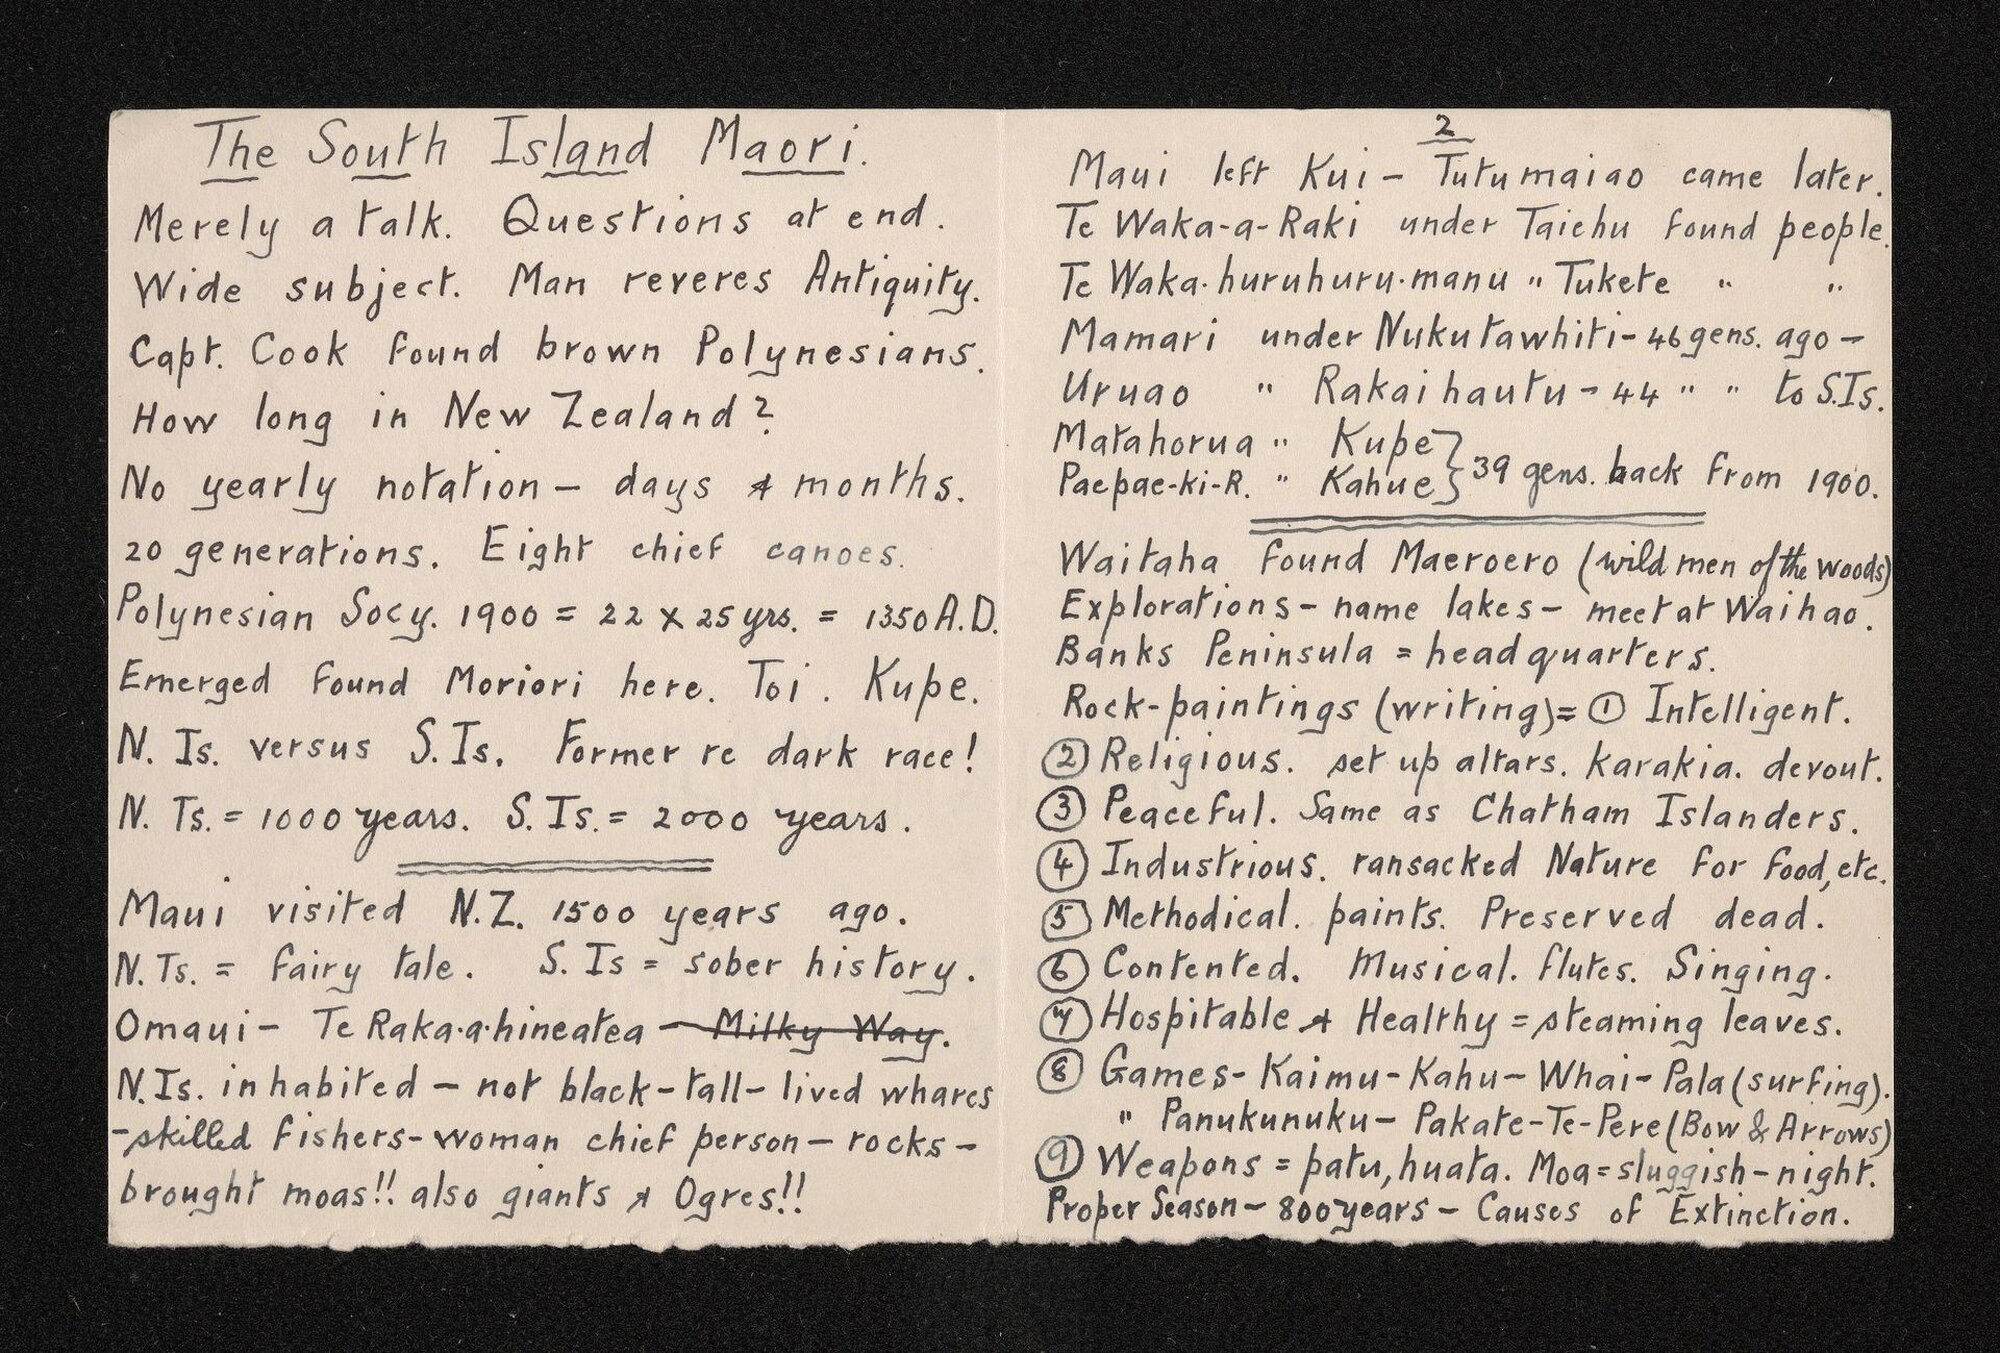 The South Island Maori.
Merely a talk. Questions at end.
Wide subject. Man reveres Antiquity.
Capt. Cook found brown Polynesians.
How long in New Zealand?
No yearly notation – days & months.
20 generations. Eight chief canoes.
Polynesian Socy. 1900 = 22 x 25 yrs. = 1350 A.D.
Emerged found Moriori here. Toi. Kupe.
N. Is. versus S. Is. Former re dark race!
N. Is. = 1000 years. S. Is. = 2000 years.
Maui visited N.Z. 1500 years ago.
N. Is. = fairy tale. S. Is = sober history.
Omaui – Te Raka-a-hineatea – Milky Way.
N. Is. inhabited – not black – tall – lived whares
- skilled fishers – woman chief person – rocks –
brought moas!! also giants & Ogres!!
2
Maui left Kui – Tutumaiao came later.
Te Waka-a-Raki under Taiehu found people.
Te Waka-huruhuru-manu " Tukete " "
Mamari under Nukutawhiti – 46 gens. ago –
Uruao " Rakaihautu – 44 " " to S.Is.
Matahorua " Kupe }
Paepae-ki-R. " Kahue } 39 gens. back from 1900.
Waitaha found Maeroero (wild men of the woods)
Explorations – name lakes – meet at Waihao.
Banks Peninsula = headquarters.
Rock-paintings (writing) = ① Intelligent.
② Religious. set up altars. karakia. devout.
③ Peaceful. Same as Chatham Islanders.
④ Industrious. ransacked Nature for food, etc.
⑤ Methodical. paints. Preserved dead.
⑥ Contented. Musical. flutes. Singing.
⑦ Hospitable & Healthy = steaming leaves.
⑧ Games – Kaimu – Kahu – Whai – Pala (surfing).
" Panukunuku – Pakate – Te-Pere (Bow & Arrows)
⑨ Weapons = patu, huata. Moa = sluggish – night.
Proper Season – 800 years – Causes of Extinction.